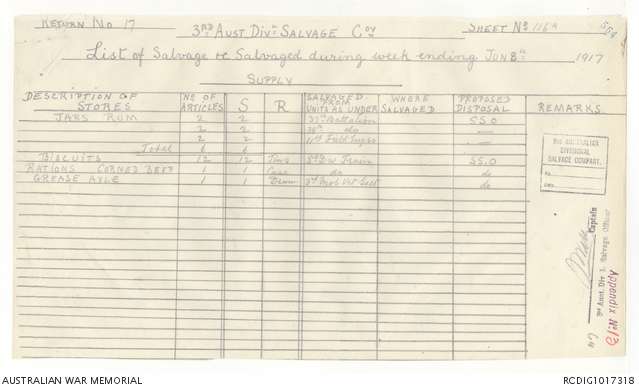 RETURN NO 17
3RD AUST DIVN SALVAGE COY
SHEET NO 116A
List of Salvage etc Salvaged during week ending JUN 8TH 1917
SUPPLY
DESCRIPTION OF STORES | NO OF ARTICLES | S | R | SALVAGED FROM UNITS AS UNDER | WHERE SALVAGED | PROPOSED DISPOSAL | REMARKS.
JARS RUM | 2 | 2 | Battalion | SSO
2 | 2 | do
2 | 2 | 11th Field
Total | 6 | 6
BISCUITS | 12 | 12 | Tins | Train | SSO
RATIONS CORNED BEEF | 1 | 1 | Case | do | do
GREASE AXLE | 1 | 1 | Drum | 3rd Mob Vet Sect | do
3RD AUSTRALIAN
DIVISIONAL
SALVAGE COMPANY.
No.
Captain
3rd Aust. Div'l. Salvage Officer
Appendix No 13
AUSTRALIAN WAR MEMORIAL
RCDIG1017318